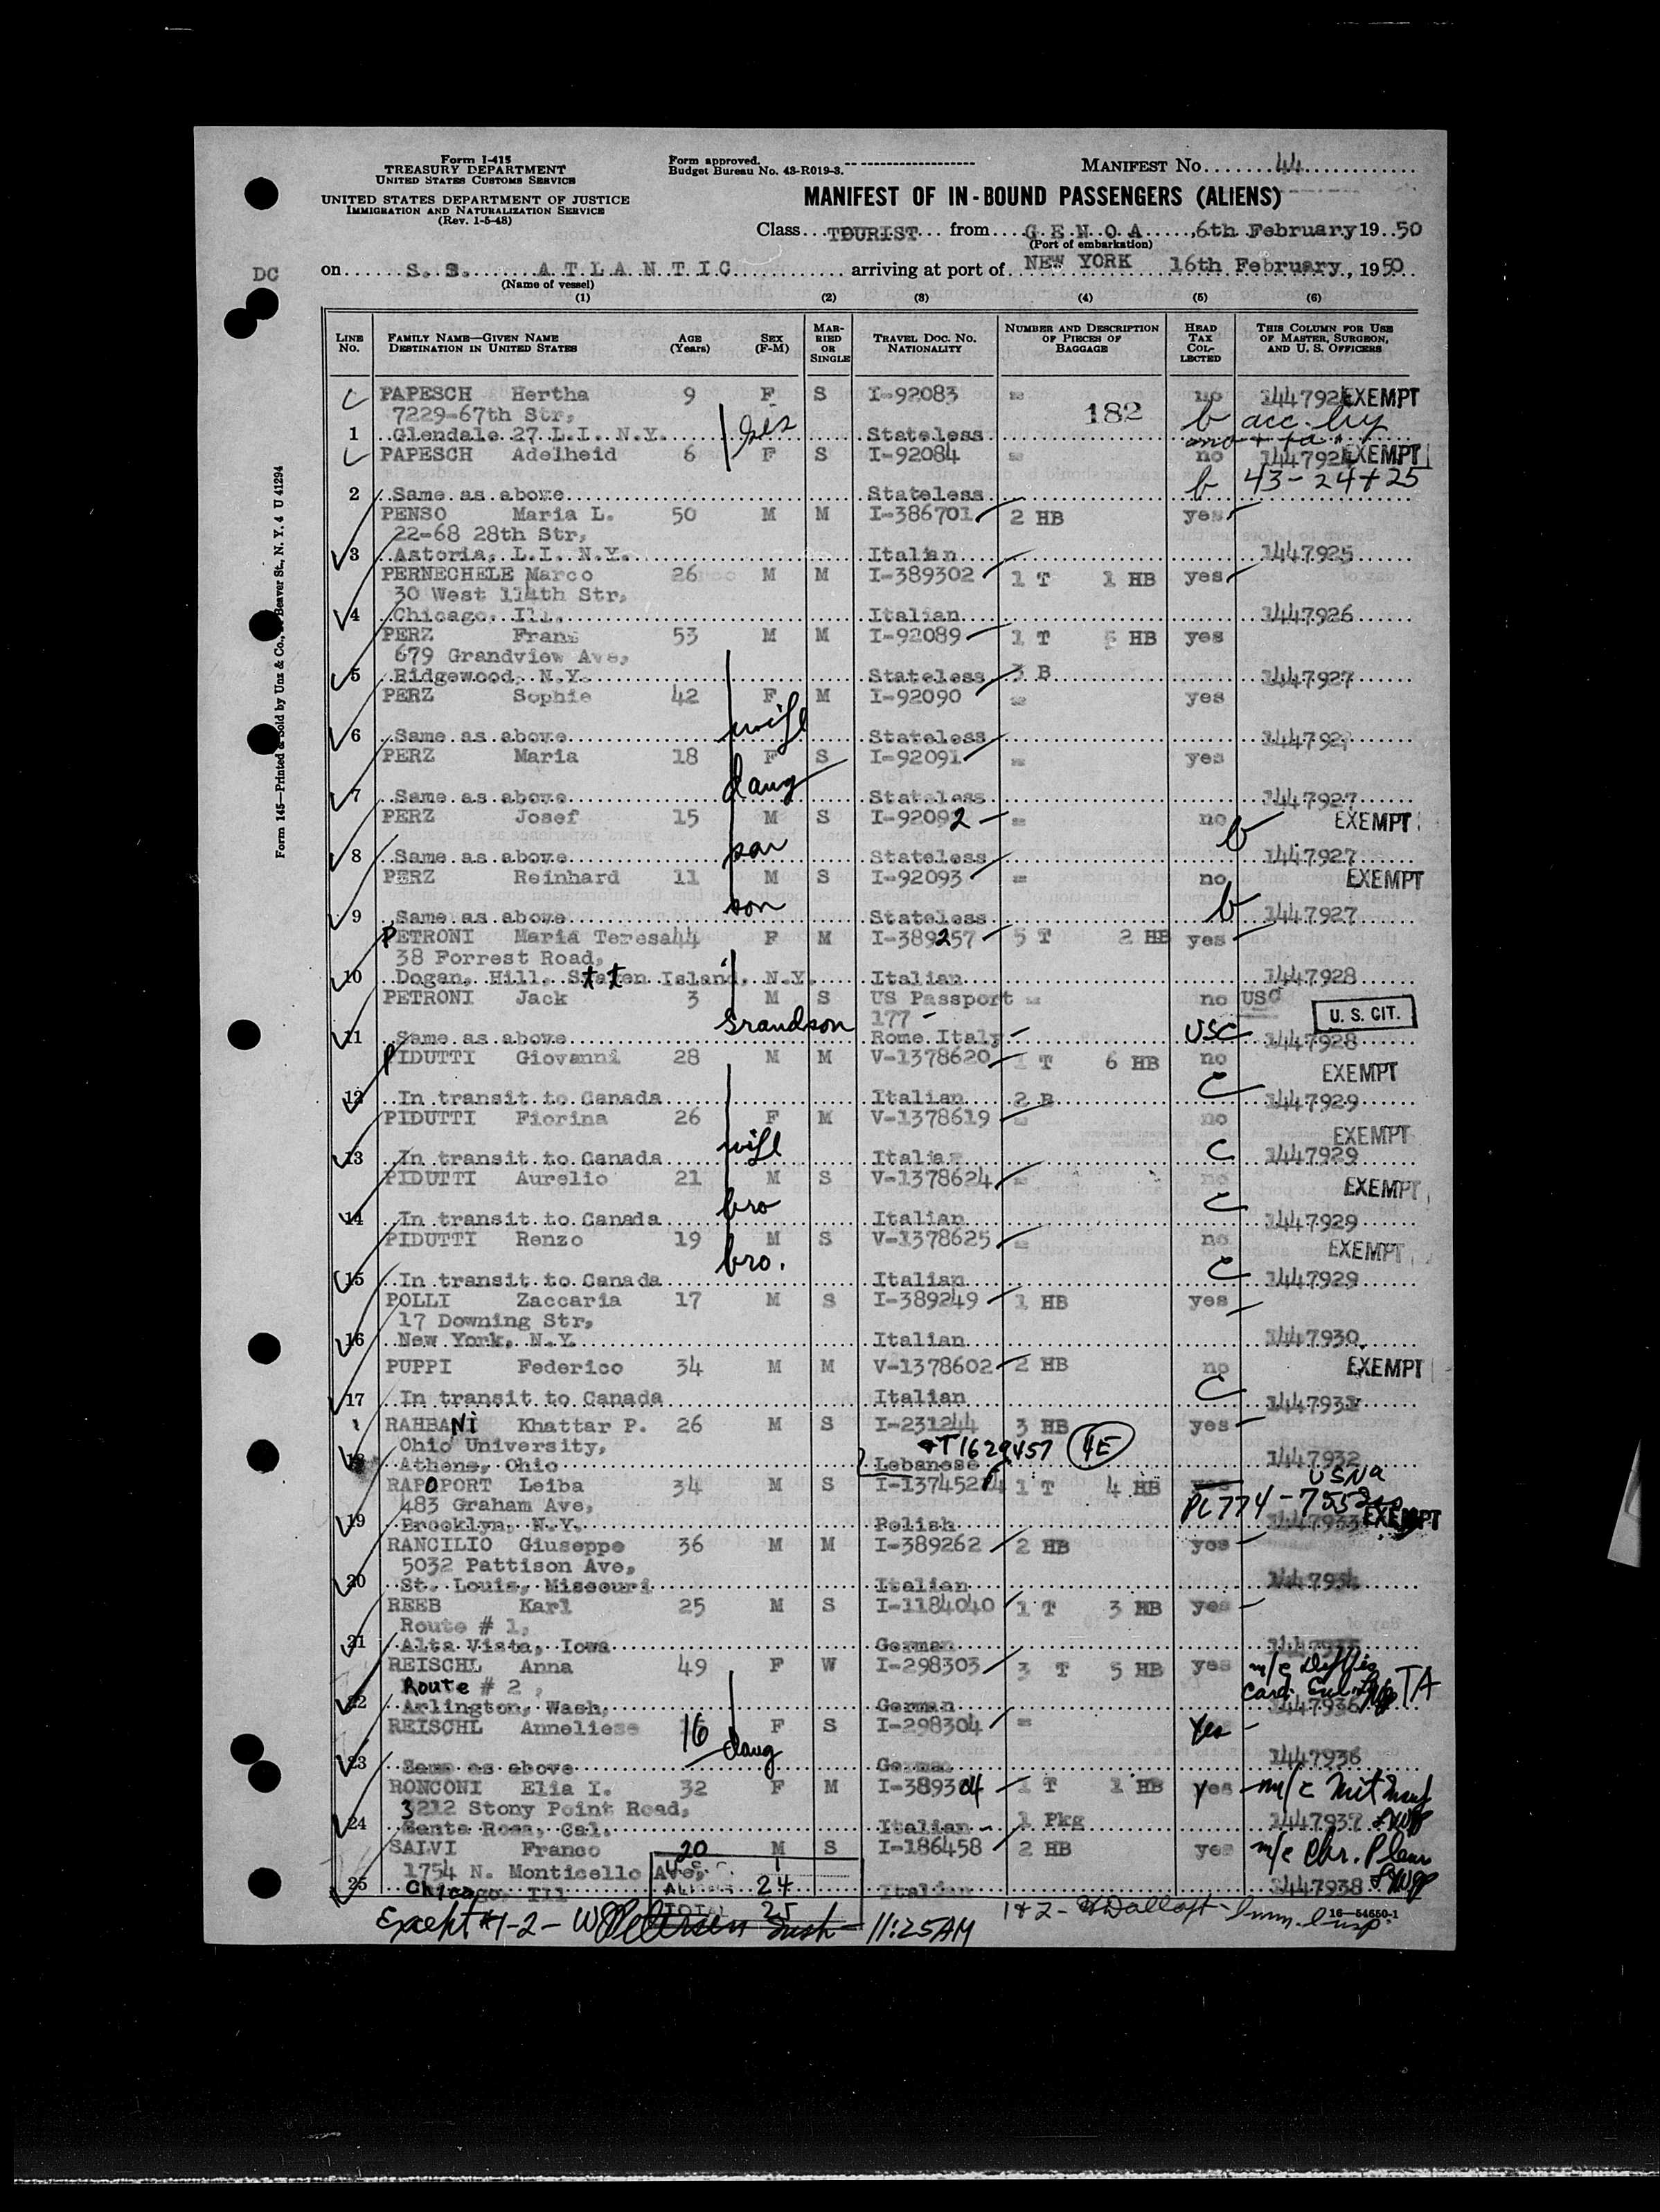 Form I-415
TREASURY DEPARTMENT
UNITED STATES CUSTOMS SERVICE
UNITED STATES DEPARTMENT OF JUSTICE
IMMIGRATION AND NATURALIZATION SERVICE
(Rev. 1-5-48)
Form approved.
Budget Bureau No. 43-R019-3.
MANIFEST No. 44
MANIFEST OF IN-BOUND PASSENGERS (ALIENS)
Class TOURIST from G E N O A, 6th February 1950
(Port of embarkation)
DC
on S. S. A T L A N T I C arriving at port of NEW YORK 16th February, 1950
(Name of vessel)
(1) (2) (3) (4) (5) (6)
LINE No. FAMILY NAME—GIVEN NAME DESTINATION IN UNITED STATES AGE (Years) SEX (F-M) MARRIED OR SINGLE TRAVEL DOC. NO. NATIONALITY NUMBER AND DESCRIPTION OF PIECES OF BAGGAGE HEAD TAX COLLECTED THIS COLUMN FOR USE OF MASTER, SURGEON, AND U. S. OFFICERS
PAPESCH Hertha 9 F S I-92083 = no EXEMPT
7229-67th Str, sis 182 b acc. by
1 Glendale 27 L.I. N.Y. Stateless
PAPESCH Adelheid 6 F S I-92084 = no EXEMPT
b 43-24+25
2 Same as above Stateless
PENSO Maria L. 50 M M I-386701 2 HB yes
22-68 28th Str,
3 Astoria, L.I. N.Y. Italian 1447925
PERNECHELE Marco 26 M M I-389302 1 T 1 HB yes
30 West 114th Str,
4 Chicago, Ill. Italian 1447926
PERZ Franz 53 M M I-92089 1 T 5 HB yes
679 Grandview Ave,
5 Ridgewood, N.Y. Stateless 3 B 1447927
PERZ Sophie 42 F M I-92090 = yes
wife
6 Same as above Stateless
PERZ Maria 18 F S I-92091 = yes
daug
7 Same as above Stateless 1447927
PERZ Josef 15 M S I-92092 = no EXEMPT
son b
8 Same as above Stateless 1447927
PERZ Reinhard 11 M S I-92093 = no EXEMPT
son b
9 Same as above Stateless 1447927
PETRONI Maria Teresa 44 F M I-389257 5 T 2 HB yes
38 Forrest Road,
10 Dogan, Hill, Staten Island, N.Y. Italian 1447928
PETRONI Jack 3 M S US Passport = no USC
grandson 177 U. S. CIT.
11 Same as above Rome Italy USC 1447928
PIDUTTI Giovanni 28 M M V-1378620 1 T 6 HB no EXEMPT
C
12 In transit to Canada Italian 2 B 1447929
PIDUTTI Fiorina 26 F M V-1378619 = no EXEMPT
wife C
13 In transit to Canada Italian 1447929
PIDUTTI Aurelio 21 M S V-1378624 = no EXEMPT
bro C
14 In transit to Canada Italian 1447929
PIDUTTI Renzo 19 M S V-1378625 = no EXEMPT
bro. C
15 In transit to Canada Italian 1447929
POLLI Zaccaria 17 M S I-389249 1 HB yes
17 Downing Str,
16 New York, N.Y. Italian 1447930
PUPPI Federico 34 M M V-1378602 2 HB no EXEMPT
C
17 In transit to Canada Italian
RAHBANI Khattar P. 26 M S I-231244 3 HB yes
Ohio University, 4E
18 Athens, Ohio Lebanese 1447932
RAPOPORT Leiba 34 M S 1 T 4 HB yes USNA
483 Graham Ave, PL 774
19 Brooklyn, N.Y. Polish 1447933 EXEMPT
RANCILIO Giuseppe 36 M M I-389262 2 HB yes
5032 Pattison Ave,
20 St. Louis, Missouri Italian
REEB Karl 25 M S I-1184040 1 T 3 HB yes
Route # 1,
21 Alta Vista, Iowa German
REISCHL Anna 49 F W I-298303 3 T 5 HB yes m/c
Route # 2, TA
22 Arlington, Wash, German 1447936
REISCHL Anneliese 16 F S I-298304 = Yes
daug
23 Same as above German 1447936
RONCONI Elia I. 32 F M I-389304 1 T 1 HB yes m/c
3212 Stony Point Road,
24 Santa Rosa, Cal. Italian 1 Pkg 1447937
SALVI Franco 20 M S I-186458 2 HB yes m/c
1754 N. Monticello Ave, U.S.C. 1
25 Chicago, Ill ALIENS 24 Italian 1447938
TOTAL 25
Except #1-2 - 11:25AM
1 & 2 - Imm. Insp.
16—54650-1
Form 145—Printed & Sold by Unz & Co., Beaver St., N. Y. 4 U 41294